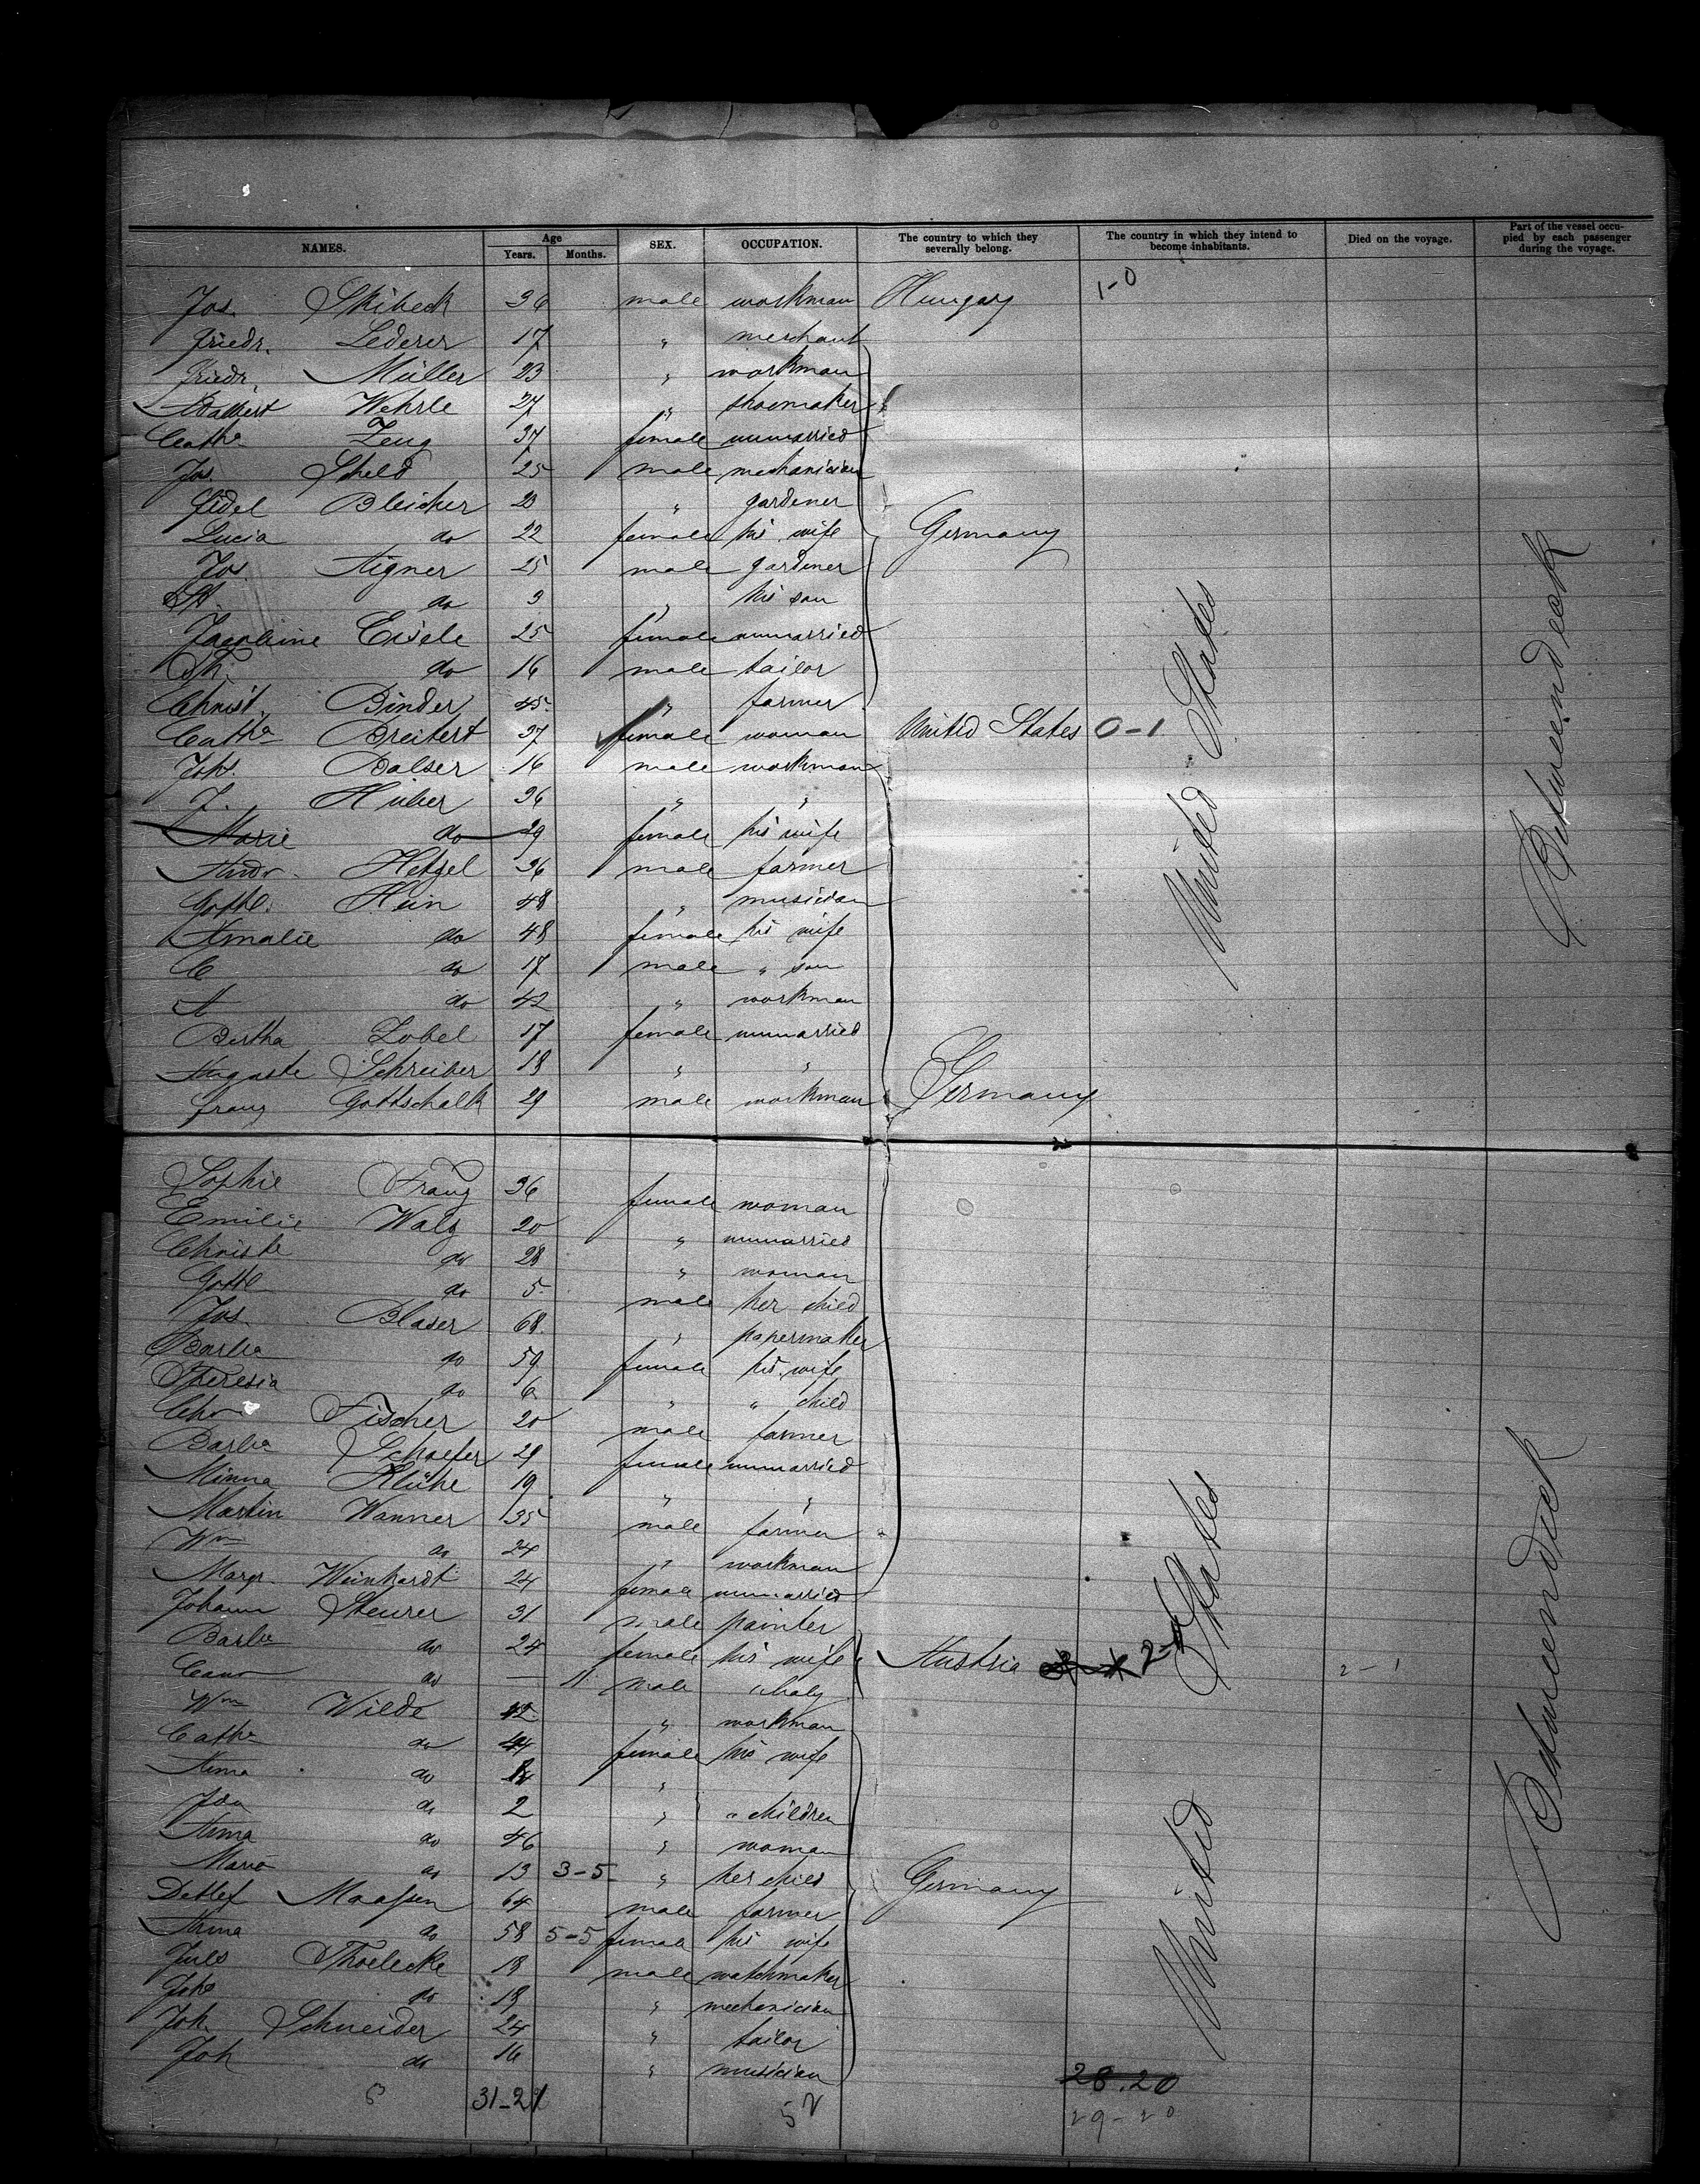 NAMES. Age Years. Months. SEX. OCCUPATION. The country to which they severally belong. The country in which they intend to become inhabitants. Died on the voyage. Part of the vessel occupied by each passenger during the voyage.
Jos. Skibeck 36 male workman Hungary 1-0
Friedr. Lederer 17 " merchant
Friedr. Müller 23 " workman
Wehrle 27 " shoemaker
Cathe Zeug 37 female unmarried
Jos. Sheld 25 male mechanician
Fidel Bleicher 23 " gardener
Lucia do 22 female his wife Germany
Jos. Aigner 25 male gardener
do 3 " his son
Jacobine Eisele 25 female unmarried
do 16 male tailor
Christ. Binder 45 " farmer
Cathe Breitert 37 female woman United States 0-1
Johs. Balser 16 male workman
J. Huber 36 " "
Marie do 29 female his wife
Andr. Hetzel 36 male farmer
Gottl. Hein 48 " musician
Amalie do 48 female his wife
C do 17 male " son
A do 42 " workman
Bertha Zobel 17 female unmarried
Auguste Schreiber 18 " "
Franz Gottschalk 29 male workman Germany
United States
Betweendeck
Sophie Franz 36 female woman
Emilie Walz 20 " unmarried
Christe do 28 " woman
Gottl do 5 male her child
Jos. Blaser 68 " papermaker
Barba do 59 female his wife
Theresia do 6 " " child
Chr Fischer 20 male farmer
Barba Schaefer 29 female unmarried
Minna Klühe 19 " "
Martin Wanner 35 male farmer
Wm do 24 " workman
Margr. Weinhardt 24 female unmarried
Johann Steurer 31 male painter
Barba do 24 female his wife Austria 2-1 2-1
do — 11 male " baby
Wm Wilde 42 " workman
Cathe do 44 female his wife
Anna do 14 "
Ida do 2 " " children
Anna do 46 " woman
Marie do 13 3-5 " her child Germany
Detlef Maassen 64 male farmer
Anna do 58 5-5 female his wife
Juls Thoelecke 18 male watchmaker
Johs do 18 " mechanician
Joh. Schneider 24 " tailor
Joh do 16 " musician
United States
Betweendeck
28.20
31-21 52 29-20